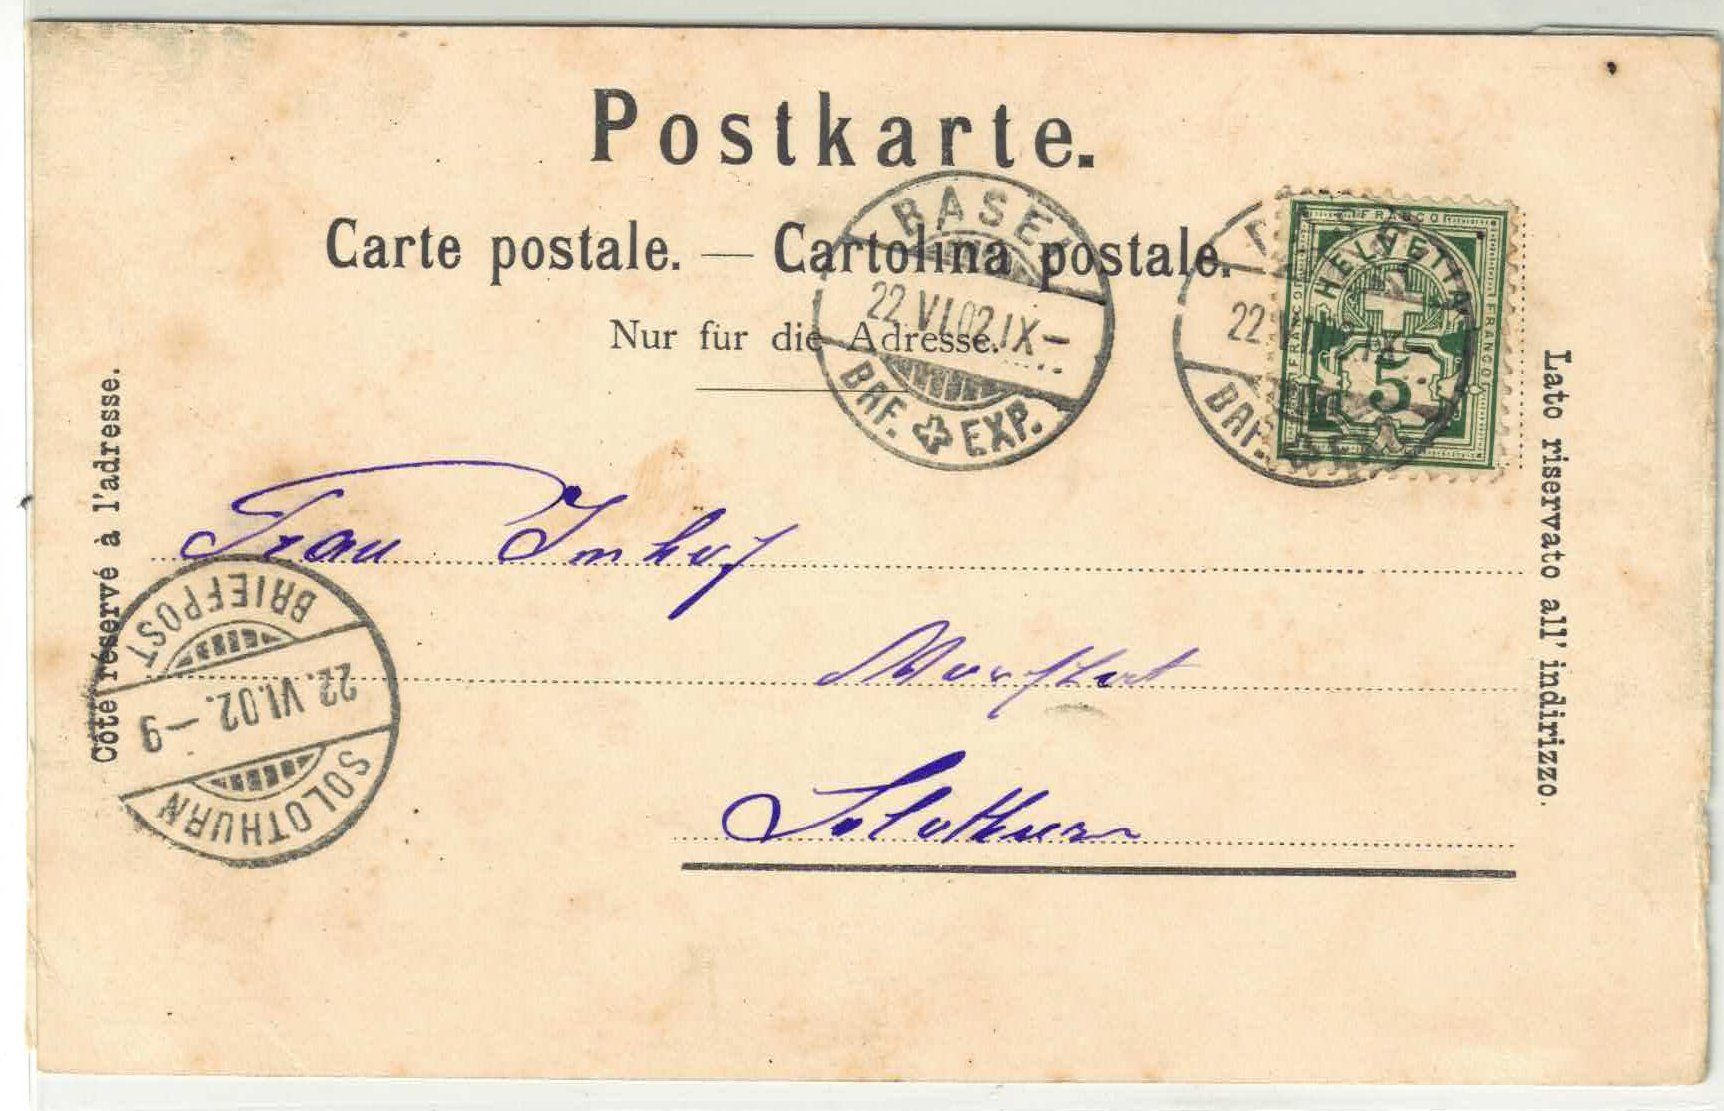 Postkarte.
Carte postale. — Cartolina postale.
Nur für die Adresse.
BASEL
22 VI.02.IX–
BRF. EXP.
22 VI
BRF.
FRANCO
FRANCO
FRANCO
HELVETIA
5
Côté réservé à l'adresse.
Lato riservato all' indirizzo.
Frau Imhof
Solothurn
BRIEFPOST
22. VI.02. –9
SOLOTHURN